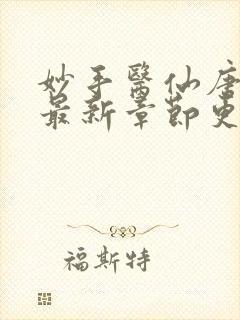 妙手醫仙唐
最新章節更
福斯特